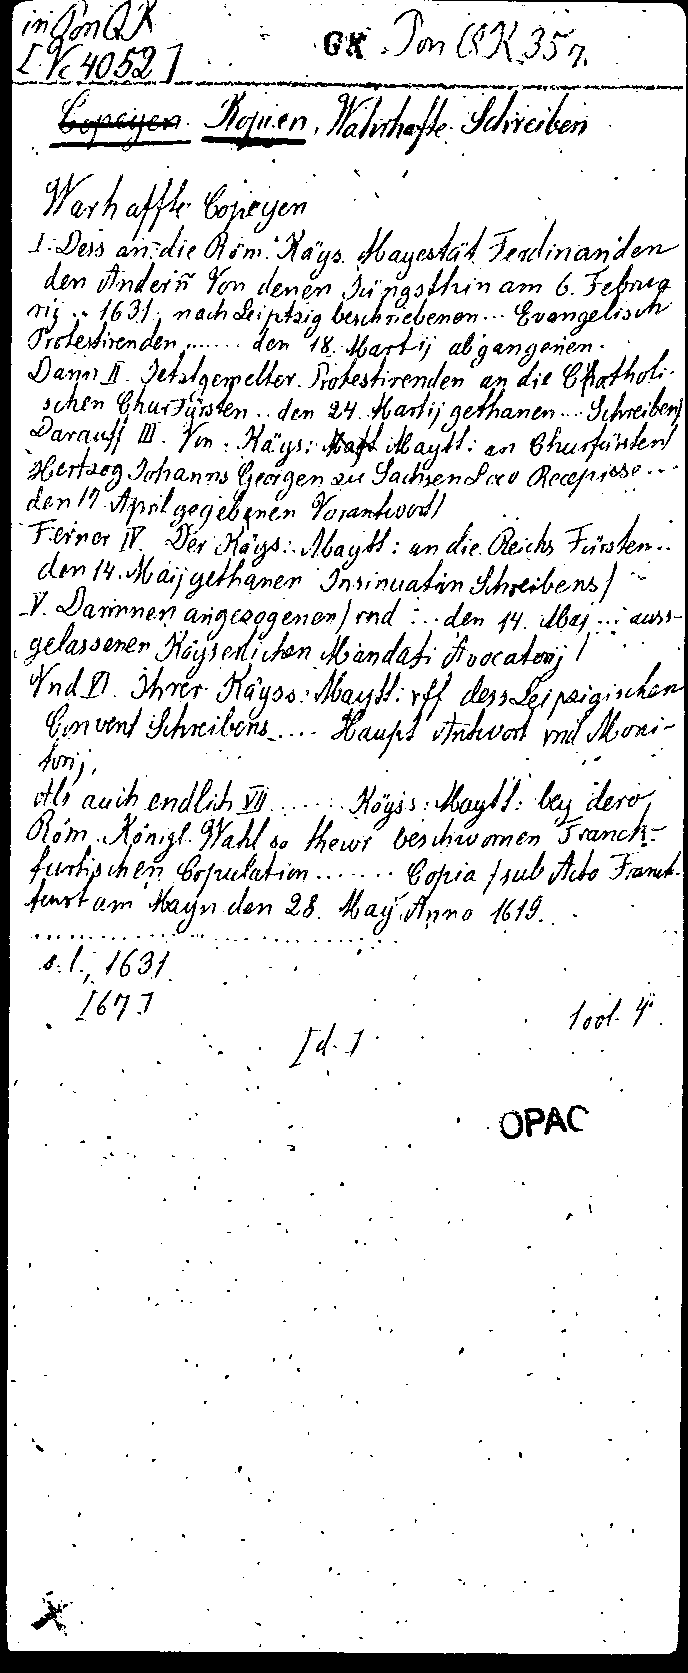 in Pon QK
[Vc 4052]
GK Pon QK 357.
Copeyen Kopien, Wahrhafte Schreiben
Warhaffte Copeyen
I. Dess an die Röm. Käys. Mayestät Ferdinanden
den Andern Von denen Jüngsthin am 6. Februa
rij .. 1631, nach Leiptzig beschriebenen ... Evangelisch
Protestirenden ...... den 18. Martij abgangenen.
Dann II. Jetztgemelter Protestirenden an die Chatholi-
schen ChurFürsten .. den 24. Martij gethanen ... Schreiben/
Darauff III. Von Käys: Maytt: an Churfürsten/
Hertzog Johanns Georgen zu Sachsen Loco Recepisse ...
den 17 April gegebenen Vorantwort/
Ferner IV. Der Käys: Maytt: an die Reichs Fürsten ..
den 14. Maij gethanen Insinuation Schreibens/
V. Darinnen angezogenen/ vnd ... den 14. Maj ... auss-
gelassenen Käyserlichen Mandati Avocatorij/
Vnd VI. Ihrer Käyss: Maytt: vff dess Leipzigischen
Convent Schreibens .... Haupt Antwort vnd Moni-
torij.
Als auch endlich VII ...... Käyss: Maytt: bey dero
Röm. Königl. Wahl so thewr beschwornen Franck-
furtischen Copulation ....... Copia/ sub Acto Franck-
furt am Mayn den 28. May Anno 1619.
s. l., 1631.
[67]
4°
[d.]
OPAC